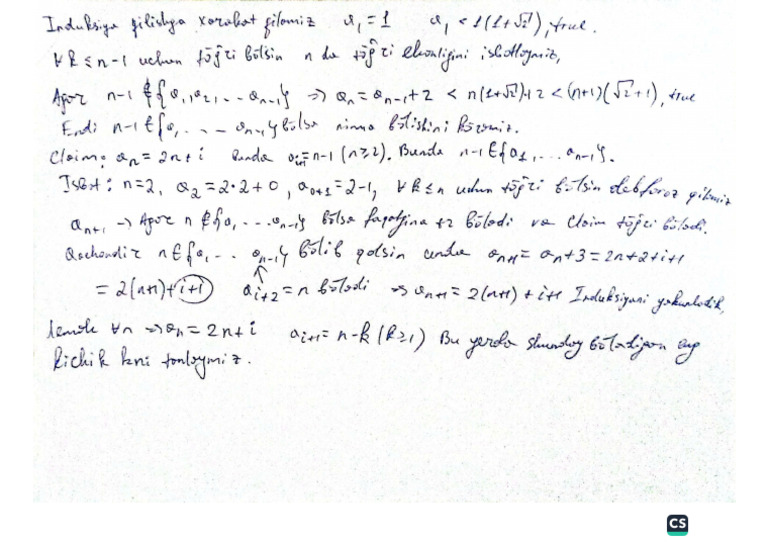 Induksiya qilishga xarakat qilamiz a₁ = 1 a₁ < 1(1+√2), true.
∀k ≤ n-1 uchun tōg̃ri bōlsin n da tōg̃ri ekanligini isbotlaymiz,
Agar n-1 ∉ {a₁, a₂, ... aₙ₋₁} ⇒ aₙ = aₙ₋₁+2 < n(1+√2)+2 < (n+1)(√2+1), true
Endi n-1 ∈ {a₁ ... aₙ₋₁} bōlsa nima bōlishini kōramiz.
Claim: aₙ = 2n+i Bunda aᵢ₊₁ = n-1 (n≥2). Bunda n-1 ∈ {a₁, ... aₙ₋₁}.
Isbot: n=2, a₂ = 2·2+0, a₀₊₁ = 2-1, ∀k ≤ n uchun tōg̃ri bōlsin deb faraz qilamiz
aₙ₊₁ → Agar n ∉ {a₁ ... aₙ₋₁} bōlsa faqatgina +2 bōladi va Claim tōg̃ri bōladi.
Qachondir n ∈ {a₁ ... aₙ₋₁} bōlib qolsin unda aₙ₊₁ = aₙ+3 = 2n+2+i+1
= 2(n+1)+(i+1) aᵢ₊₂ = n bōladi ⇒ aₙ₊₁ = 2(n+1)+i+1 Induksiyani yakunladik,
demak ∀n ⇒ aₙ = 2n+i aᵢ₊₁ = n-k (k≥1) Bu yerda shunday bōladigan eng
kichik kni tanlaymiz.
CS